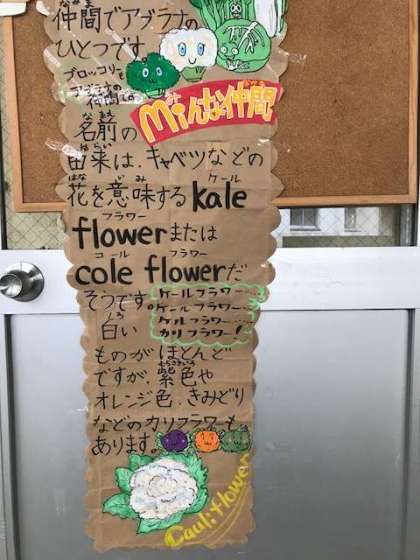 仲間でアブラナの
ひとつです
ブロッコリーも
アブラナの
仲間だよ
Miんな仲間
名前の
由来は、キャベツなどの
花を意味する kale
flower または
cole flower だ
そうです。
ケールフラワー…
ケールフラワー…
ケルフラワー…
カリフラワー!
白い
ものがほとんど
ですが、紫色や
オレンジ色、きみどり
などのカリフラワーも
あります。
Cauliflower